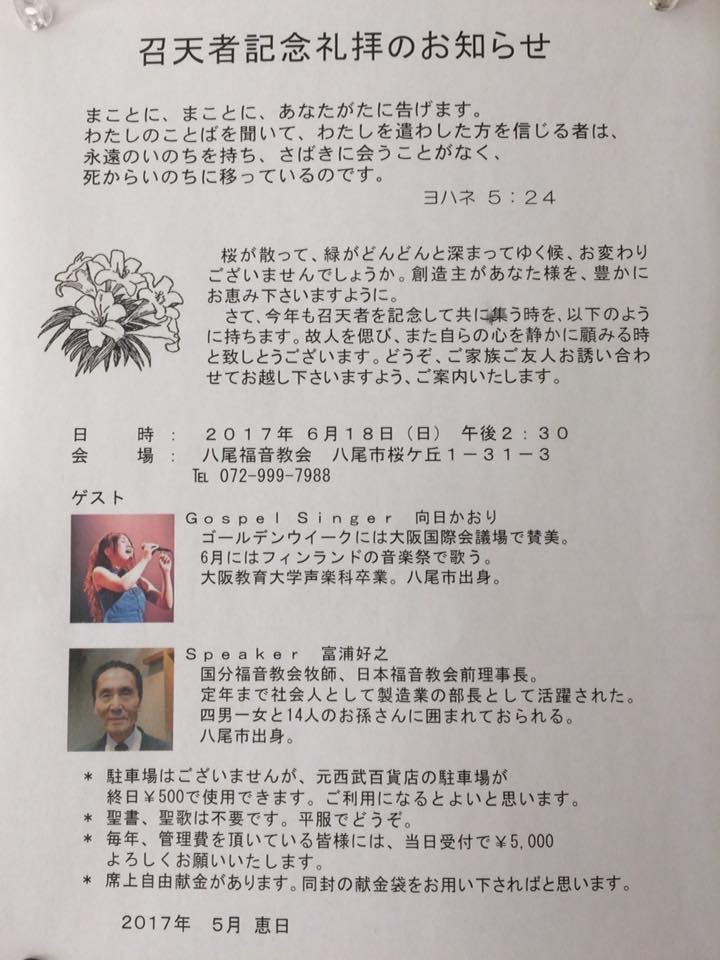 召天者記念礼拝のお知らせ
まことに、まことに、あなたがたに告げます。
わたしのことばを聞いて、わたしを遣わした方を信じる者は、
永遠のいのちを持ち、さばきに会うことがなく、
死からいのちに移っているのです。
ヨハネ ５：２４
桜が散って、緑がどんどんと深まってゆく候、お変わり
ございませんでしょうか。創造主があなた様を、豊かに
お恵み下さいますように。
さて、今年も召天者を記念して共に集う時を、以下のよう
に持ちます。故人を偲び、また自らの心を静かに顧みる時
と致しとうございます。どうぞ、ご家族ご友人お誘い合わ
せてお越し下さいますよう、ご案内いたします。
日　　時：　２０１７年 ６月１８日（日） 午後２：３０
会　　場：　八尾福音教会　八尾市桜ケ丘１－３１－３
℡ 072-999-7988
ゲスト
Ｇｏｓｐｅｌ Ｓｉｎｇｅｒ　向日かおり
ゴールデンウイークには大阪国際会議場で賛美。
6月にはフィンランドの音楽祭で歌う。
大阪教育大学声楽科卒業。八尾市出身。
Ｓｐｅａｋｅｒ　富浦好之
国分福音教会牧師、日本福音教会前理事長。
定年まで社会人として製造業の部長として活躍された。
四男一女と14人のお孫さんに囲まれておられる。
八尾市出身。
＊ 駐車場はございませんが、元西武百貨店の駐車場が
終日￥500で使用できます。ご利用になるとよいと思います。
＊ 聖書、聖歌は不要です。平服でどうぞ。
＊ 毎年、管理費を頂いている皆様には、当日受付で￥5,000
よろしくお願いいたします。
＊ 席上自由献金があります。同封の献金袋をお用い下さればと思います。
２０１７年　５月 恵日